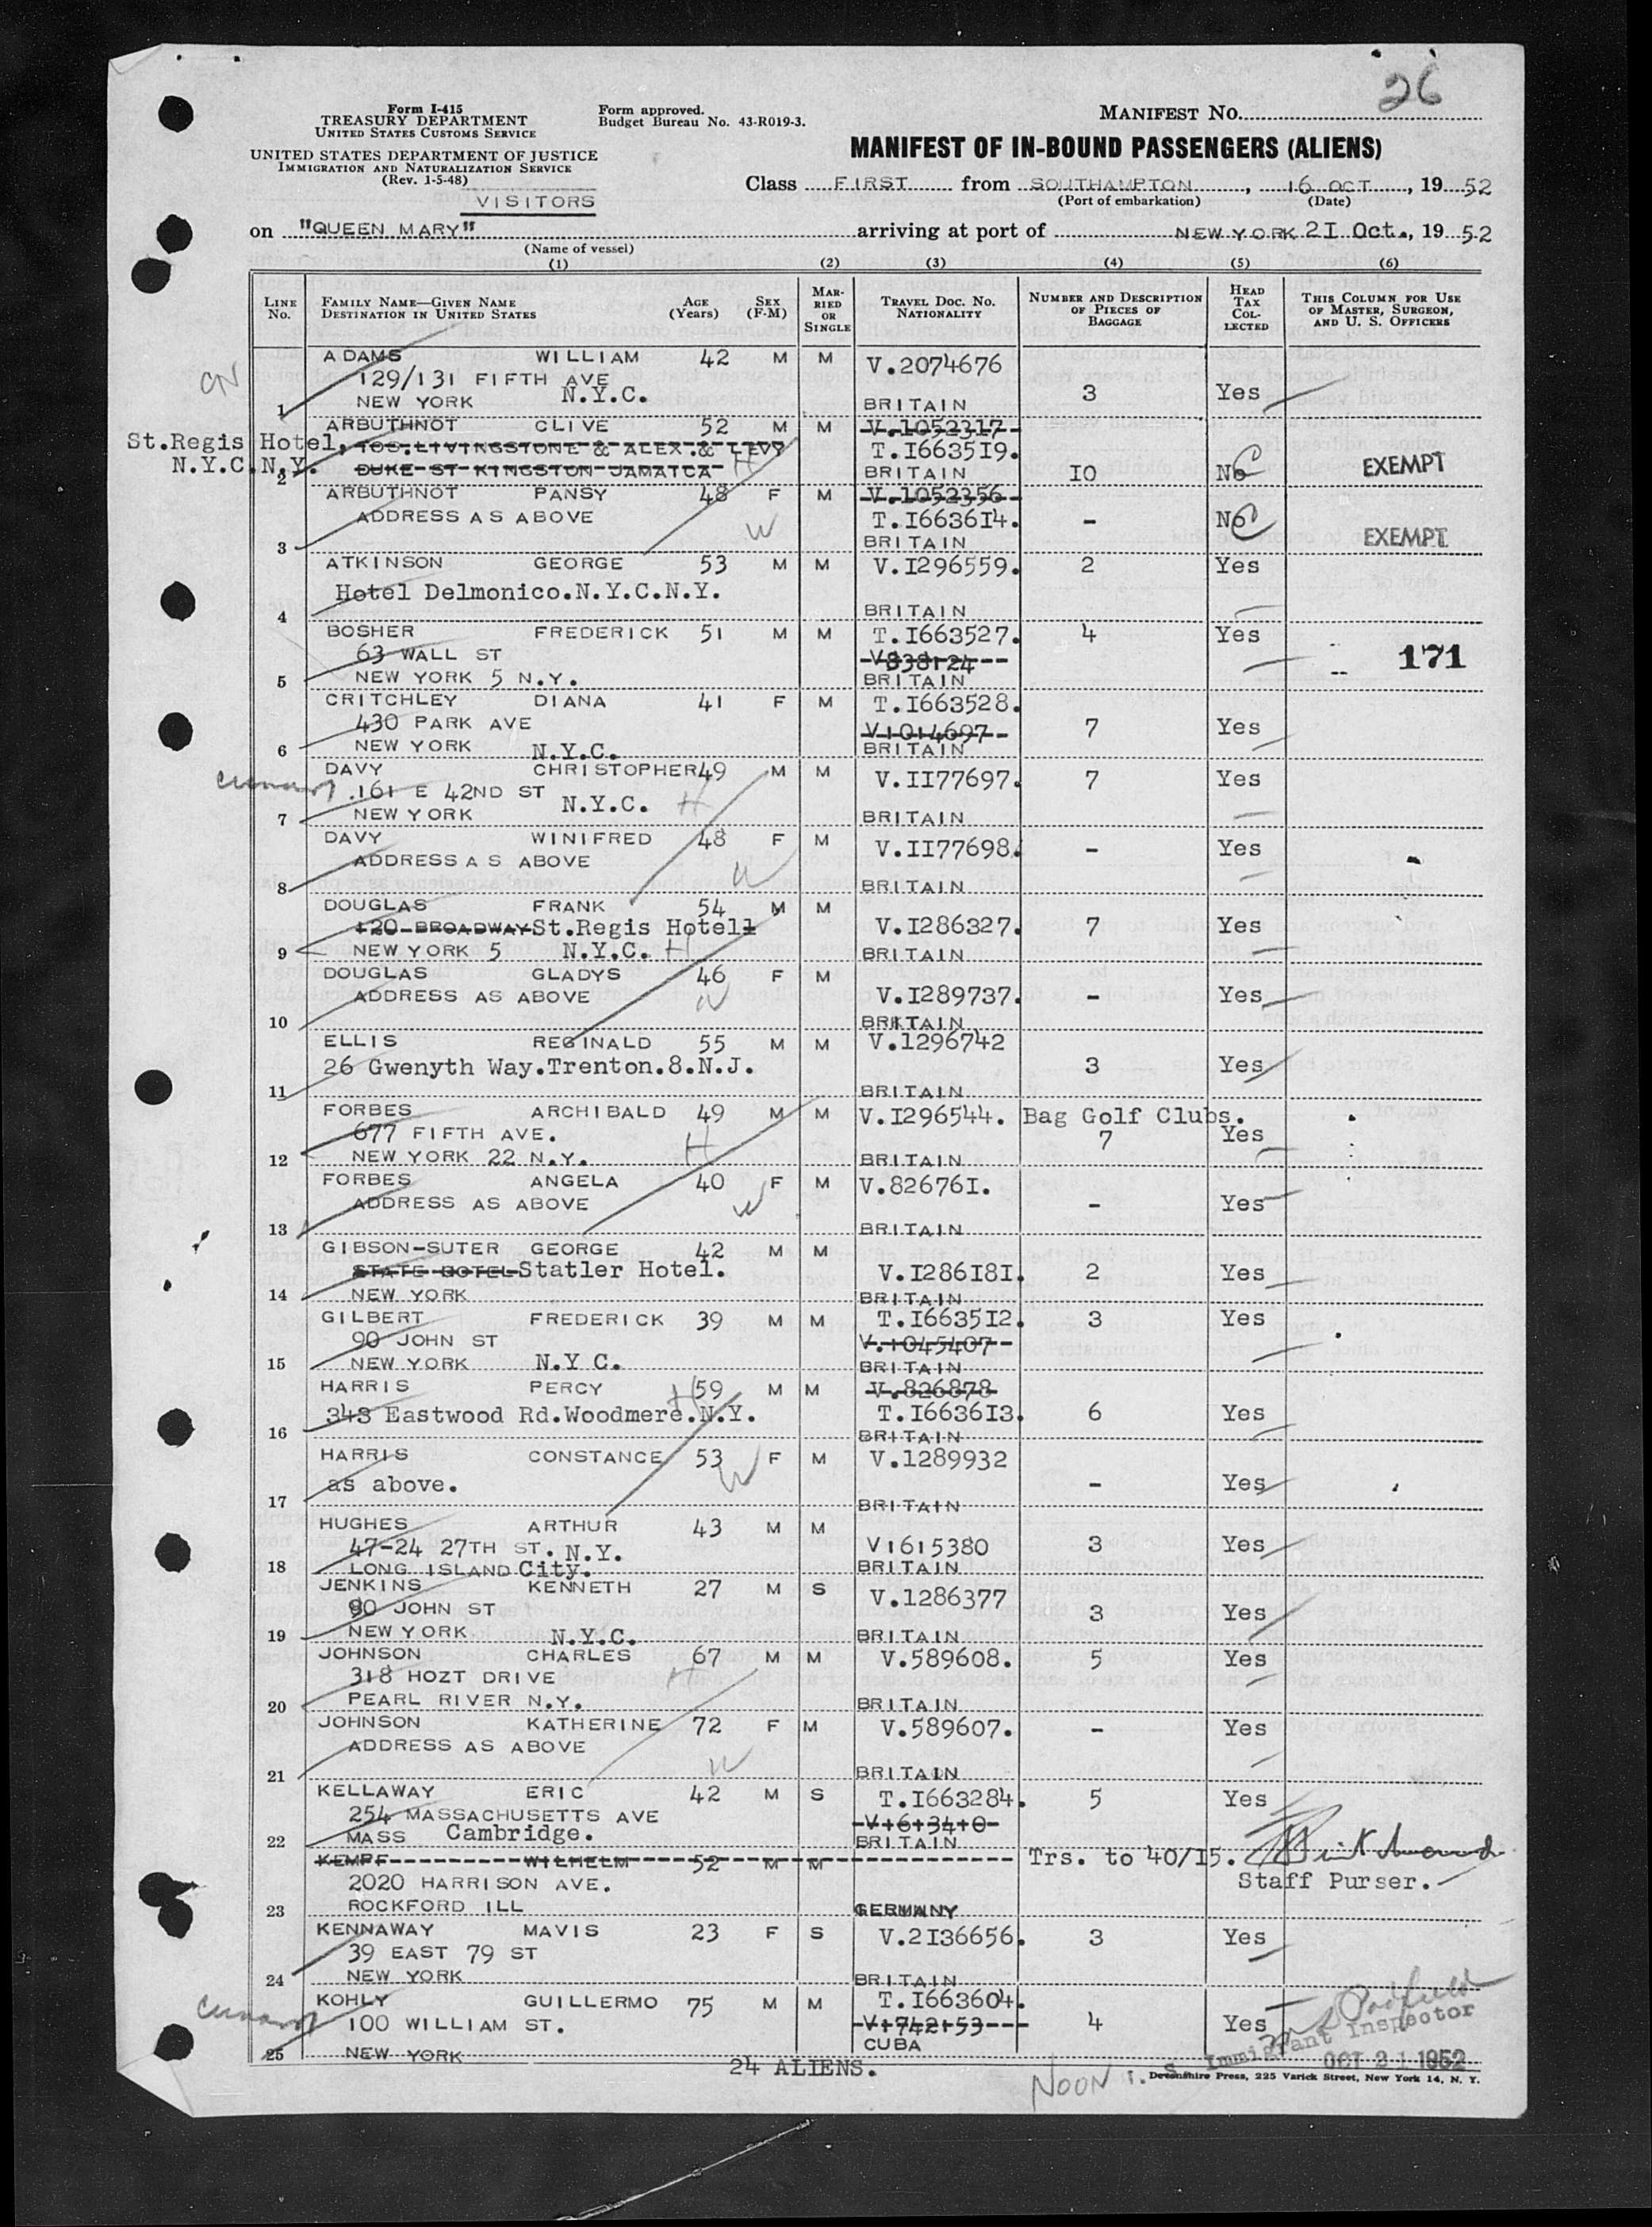 26
Form I-415
TREASURY DEPARTMENT
UNITED STATES CUSTOMS SERVICE
Form approved.
Budget Bureau No. 43-R019-3.
MANIFEST NO.
UNITED STATES DEPARTMENT OF JUSTICE
IMMIGRATION AND NATURALIZATION SERVICE
(Rev. 1-5-48)
VISITORS
MANIFEST OF IN-BOUND PASSENGERS (ALIENS)
Class FIRST from SOUTHAMPTON, 16 OCT, 19 52
(Port of embarkation) (Date)
on "QUEEN MARY" arriving at port of NEW YORK 21 Oct., 19 52
(Name of vessel)
(1) (2) (3) (4) (5) (6)
LINE No. FAMILY NAME—GIVEN NAME DESTINATION IN UNITED STATES AGE (Years) SEX (F-M) MARRIED OR SINGLE TRAVEL DOC. NO. NATIONALITY NUMBER AND DESCRIPTION OF PIECES OF BAGGAGE HEAD TAX COLLECTED THIS COLUMN FOR USE OF MASTER, SURGEON, AND U. S. OFFICERS
ADAMS WILLIAM 42 M M V.2074676
129/131 FIFTH AVE N.Y.C. 3 Yes
1 NEW YORK BRITAIN
ARBUTHNOT CLIVE 52 M M V.1052317
St.Regis Hotel. TOS.LIVINGSTONE & ALEX.& LEVY T.I6635I9.
N.Y.C.N.Y. DUKE ST KINGSTON JAMAICA H BRITAIN IO No EXEMPT
2
ARBUTHNOT PANSY 48 F M V.1052356
ADDRESS AS ABOVE W T.I6636I4. - No EXEMPT
3 BRITAIN
ATKINSON GEORGE 53 M M V.I296559. 2 Yes
Hotel Delmonico.N.Y.C.N.Y.
4 BRITAIN
BOSHER FREDERICK 51 M M T.I663527. 4 Yes
63 WALL ST V838124 171
5 NEW YORK 5 N.Y. BRITAIN
CRITCHLEY DIANA 41 F M T.I663528.
430 PARK AVE V1014697 7 Yes
6 NEW YORK N.Y.C. BRITAIN
DAVY CHRISTOPHER 49 M M V.II77697. 7 Yes
cunard 161 E 42ND ST N.Y.C. H
7 NEW YORK BRITAIN
DAVY WINIFRED 48 F M V.II77698. - Yes
ADDRESS AS ABOVE W
8 BRITAIN
DOUGLAS FRANK 54 M M
120 BROADWAY St.Regis Hotel V.I286327. 7 Yes
9 NEW YORK 5 N.Y.C. H BRITAIN
DOUGLAS GLADYS 46 F M
ADDRESS AS ABOVE W V.I289737. - Yes
10 BRITAIN
ELLIS REGINALD 55 M M V.1296742
26 Gwenyth Way.Trenton.8.N.J. 3 Yes
11 BRITAIN
FORBES ARCHIBALD 49 M M V.I296544. Bag Golf Clubs.
677 FIFTH AVE. H 7 Yes
12 NEW YORK 22 N.Y. BRITAIN
FORBES ANGELA 40 F M V.82676I.
ADDRESS AS ABOVE W - Yes
13 BRITAIN
GIBSON-SUTER GEORGE 42 M M
STATE HOTEL Statler Hotel. V.I286I8I. 2 Yes
14 NEW YORK BRITAIN
GILBERT FREDERICK 39 M M T.I6635I2. 3 Yes
90 JOHN ST V.1045407
15 NEW YORK N.Y C. BRITAIN
HARRIS PERCY H 59 M M V.826878
343 Eastwood Rd.Woodmere.N.Y. T.I6636I3. 6 Yes
16 BRITAIN
HARRIS CONSTANCE 53 W F M V.1289932
as above. - Yes
17 BRITAIN
HUGHES ARTHUR 43 M M
47-24 27TH ST. N.Y. V1615380 3 Yes
18 LONG ISLAND City. BRITAIN
JENKINS KENNETH 27 M S V.1286377
90 JOHN ST 3 Yes
19 NEW YORK N.Y.C. BRITAIN
JOHNSON CHARLES 67 M M V.589608. 5 Yes
318 HOZT DRIVE H
20 PEARL RIVER N.Y. BRITAIN
JOHNSON KATHERINE 72 F M V.589607. - Yes
ADDRESS AS ABOVE W
21 BRITAIN
KELLAWAY ERIC 42 M S T.I663284. 5 Yes
254 MASSACHUSETTS AVE V1613410
22 MASS Cambridge. BRITAIN
KEMPF WILHELM 52 M M Trs. to 40/15.
2020 HARRISON AVE. Staff Purser.
23 ROCKFORD ILL GERMANY
KENNAWAY MAVIS 23 F S V.2I36656. 3 Yes
39 EAST 79 ST
24 NEW YORK BRITAIN
KOHLY GUILLERMO 75 M M T.I663604.
cunard 100 WILLIAM ST. V1742153 4 Yes
25 NEW YORK CUBA
24 ALIENS.
U. S. Immigrant Inspector
OCT 21 1952
NOON
Devonshire Press, 225 Varick Street, New York 14, N. Y.